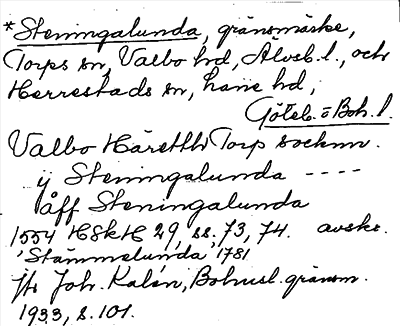 *Steningalunda, gränsmärke,
Torps sn, Valbo hd, Älvsb. l., och
Herrestads sn, Lane hd,
Göteb. o Boh. l.
Valbo Häretth Torp socknn.
ij Steningalunda ----
åff Steningalunda
1554 HSkH 29, ss. 73, 74. avskr.
'Stämmelunda' 1781
jfr Joh. Kalén, Bohusl. gränsm.
1933, s. 101.